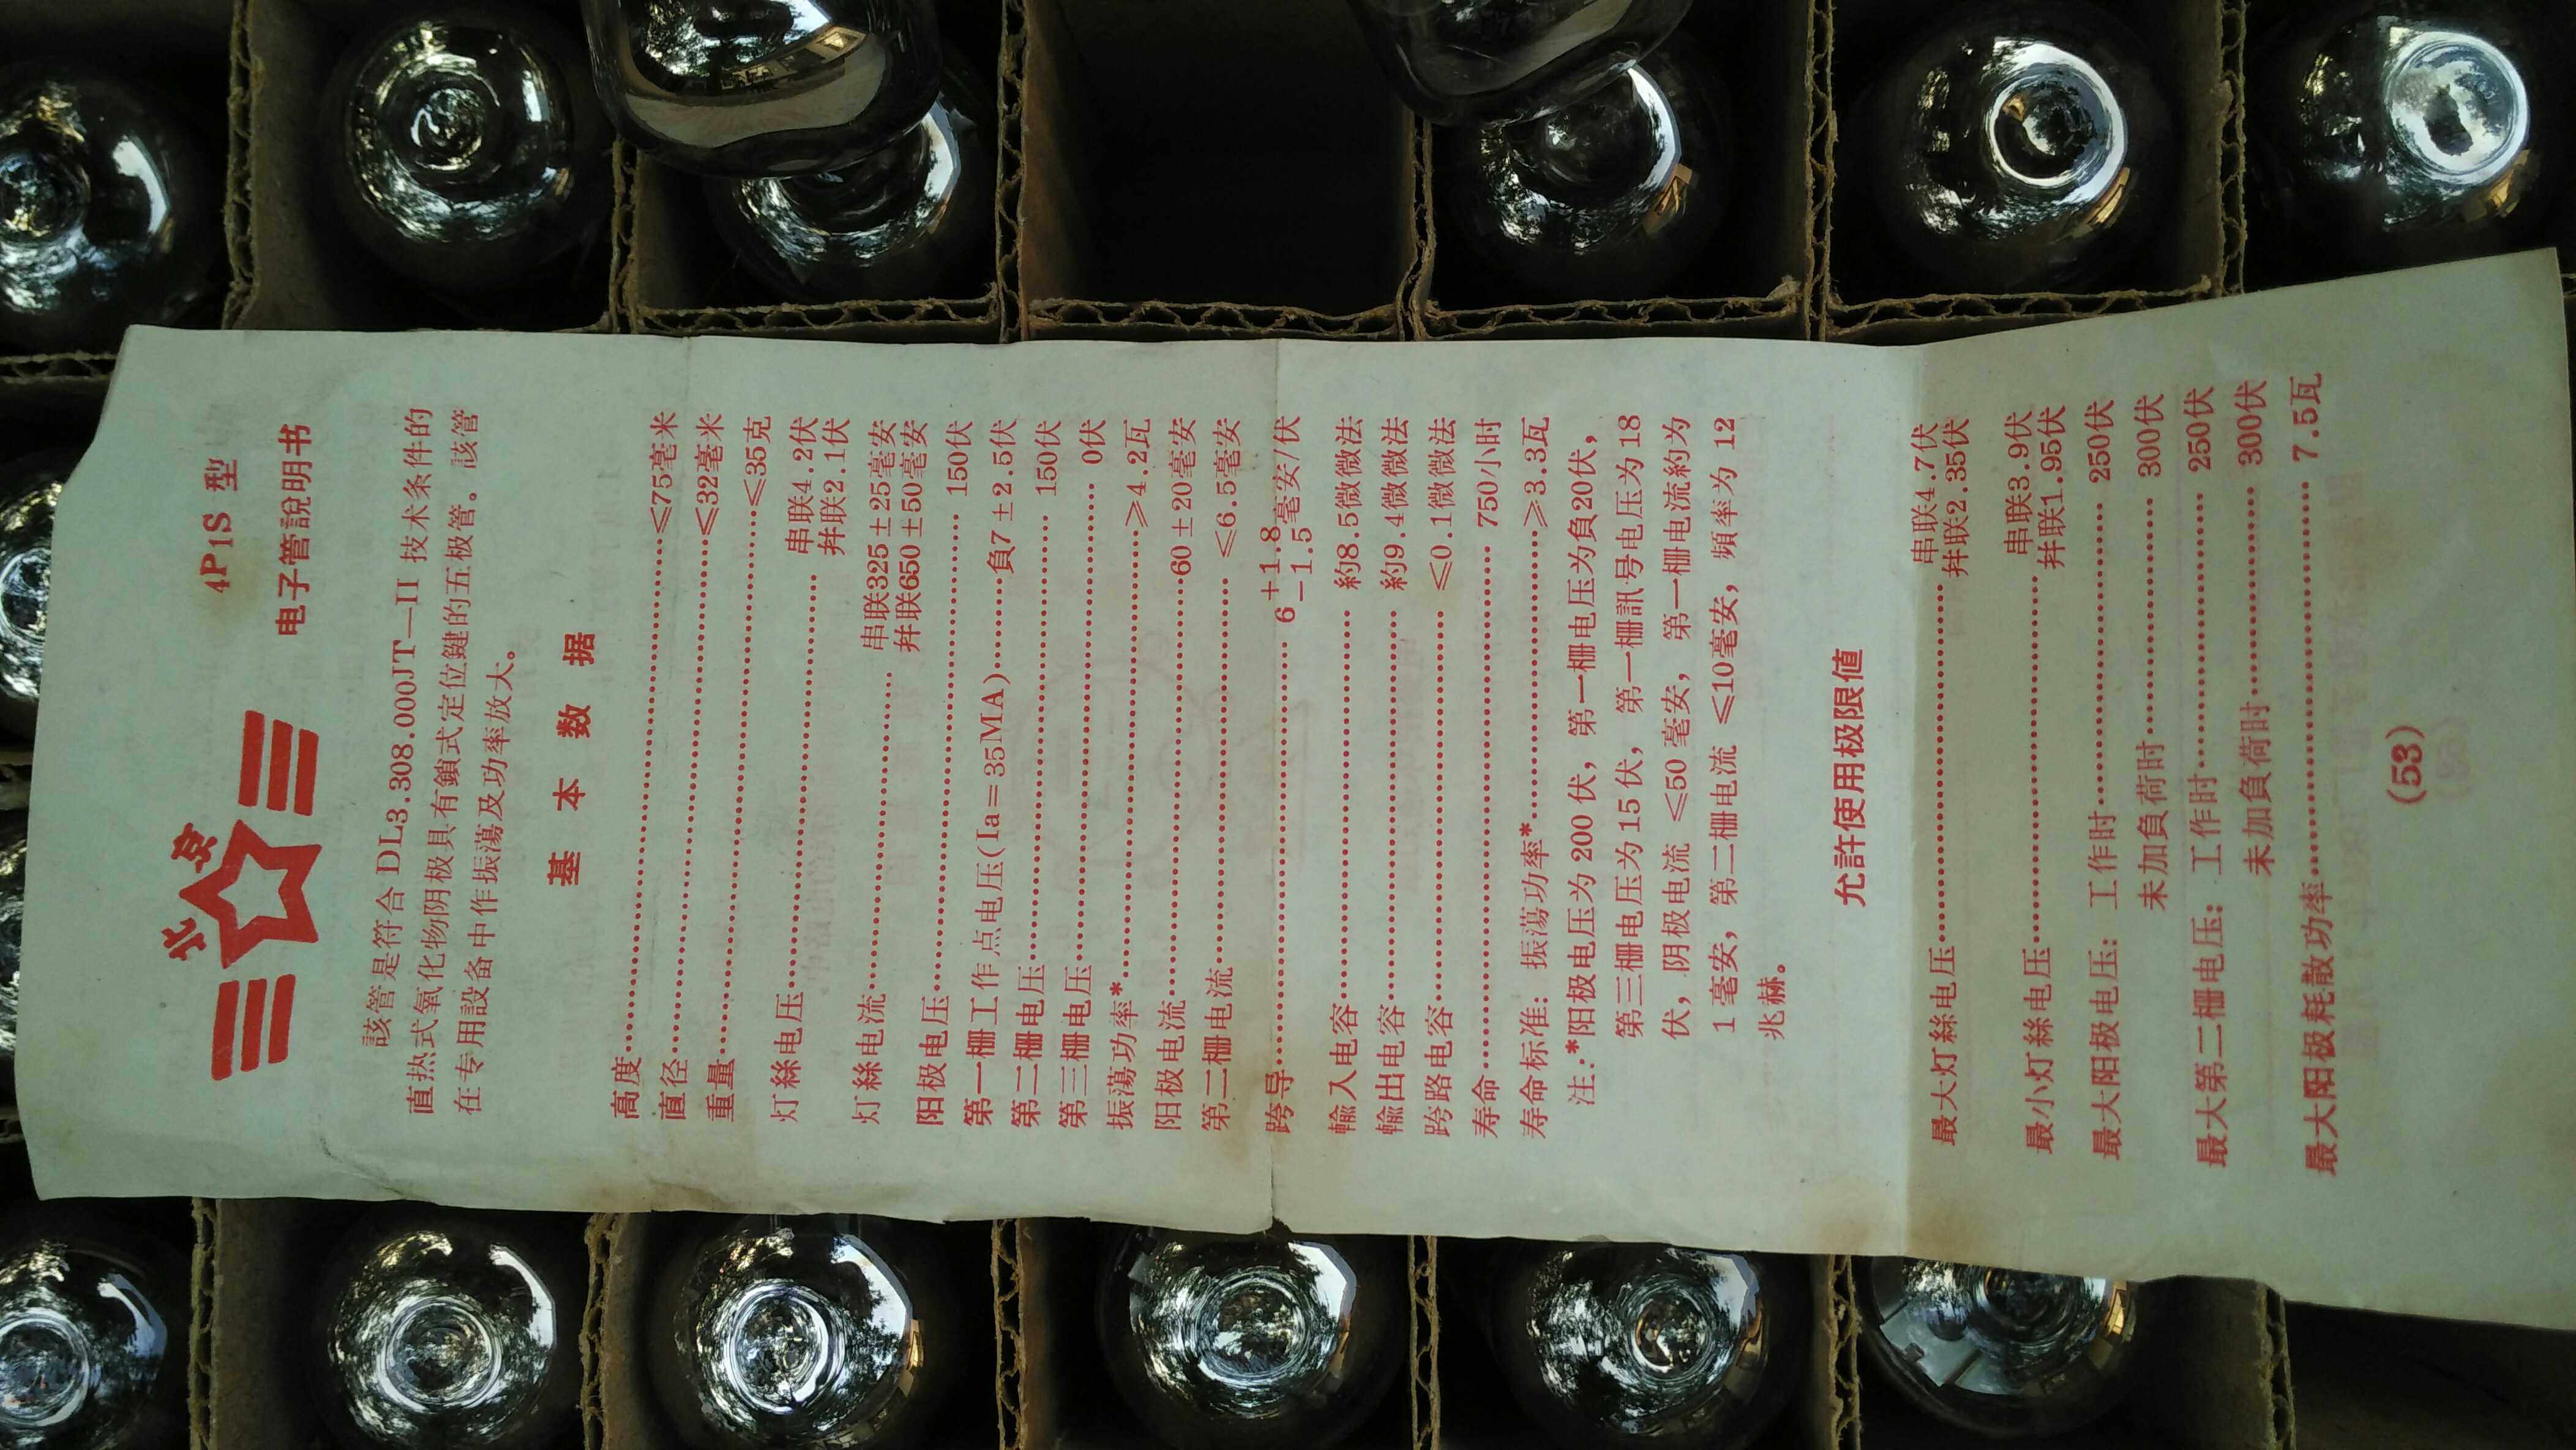 北京
4P1S 型
电子管說明书
該管是符合 DL3.308.000JT—II 技术条件的
直热式氧化物阴极具有鎖式定位鍵的五极管。該管
在专用設备中作振蕩及功率放大。
基本数据
高度……≤75毫米
直径……≤32毫米
重量……≤35克
灯絲电压……串联4.2伏
幷联2.1伏
灯絲电流……串联325±25毫安
幷联650±50毫安
阳极电压……150伏
第一栅工作点电压(Ia=35MA)……負7±2.5伏
第二栅电压……150伏
第三栅电压……0伏
振蕩功率*……≥4.2瓦
阳极电流……60±20毫安
第二栅电流……≤6.5毫安
跨导……6 +1.8 −1.5 毫安/伏
輸入电容……約8.5微微法
輸出电容……約9.4微微法
跨路电容……≤0.1微微法
寿命……750小时
寿命标准：振蕩功率*……≥3.3瓦
注：*阳极电压为200伏，第一栅电压为負20伏，
第三栅电压为15伏，第一栅訊号电压为18
伏，阴极电流≤50毫安，第一栅电流約为
1毫安，第二栅电流≤10毫安，頻率为12
兆赫。
允許使用极限值
最大灯絲电压……串联4.7伏
幷联2.35伏
最小灯絲电压……串联3.9伏
幷联1.95伏
最大阳极电压：工作时……250伏
未加負荷时……300伏
最大第二栅电压：工作时……250伏
未加負荷时……300伏
最大阳极耗散功率……7.5瓦
(53)